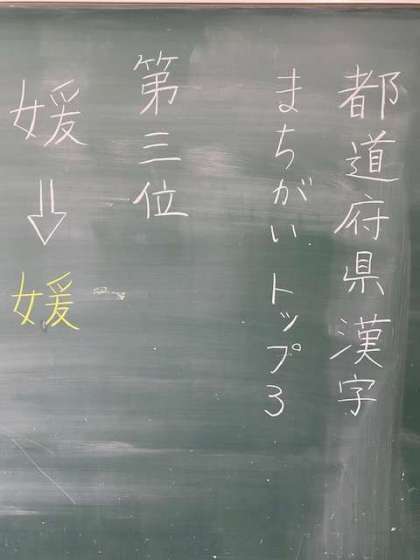 都道府県漢字
まちがいトップ3
第三位
媛
⇩
媛